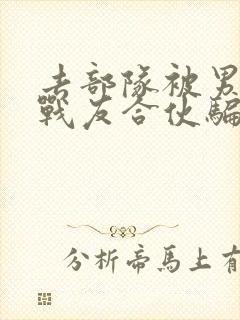 去部隊被男
戰友合伙騙
分析帝馬上有